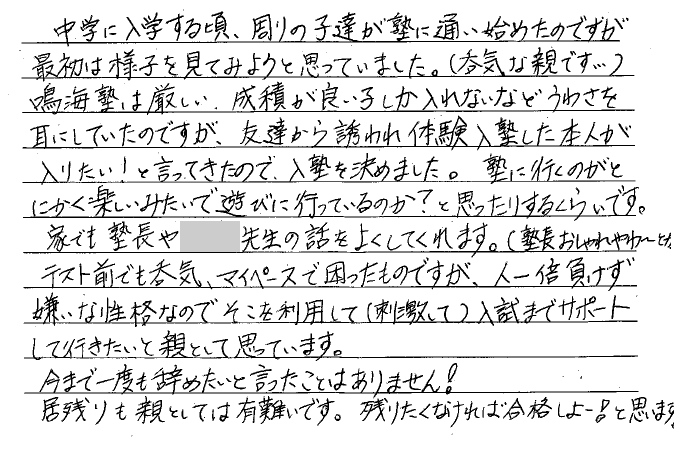 中学に入学する頃、周りの子達が塾に通い始めたのですが
最初は様子を見てみようと思っていました。(呑気な親です…)
鳴海塾は厳しい、成積が良い子しか入れないなどうわさを
耳にしていたのですが、友達から誘われ体験入塾した本人が
入りたい!と言ってきたので、入塾を決めました。 塾に行くのがと
にかく楽しいみたいで遊びに行っているのか?と思ったりするくらいです。
家でも塾長や 先生の話をよくしてくれます。(塾長おしゃれやわ〜とか
テスト前でも呑気、マイペースで困ったものですが、人一倍負けず
嫌いな性格なのでそこを利用して(刺激して)入試までサポート
して行きたいと親として思っています。
今まで一度も辞めたいと言ったことはありません!
居残りも親としては有難いです。残りたくなければ合格しよー!と思います